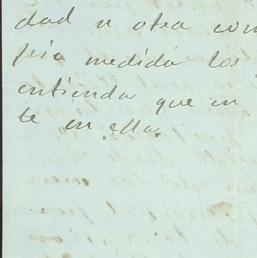 dad u otra com
pia medida los
entienda que en
te en ella.